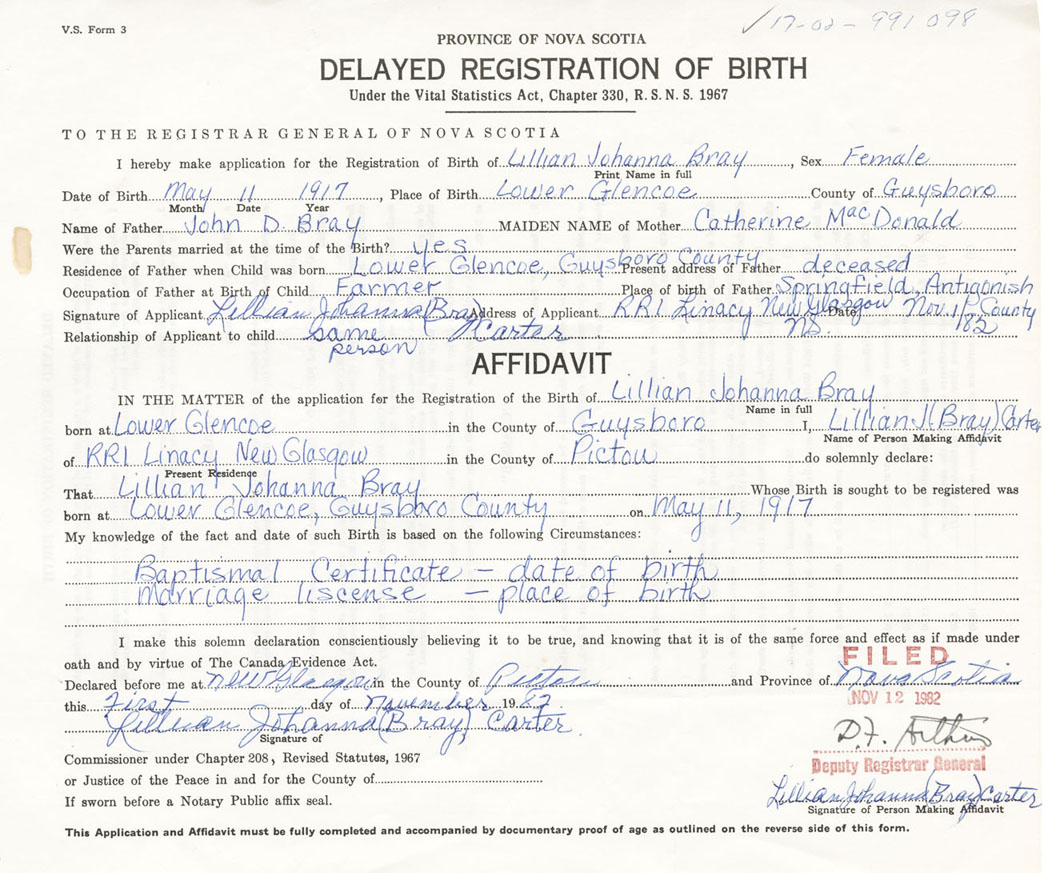 V.S. Form 3
17-02-991 098
PROVINCE OF NOVA SCOTIA
DELAYED REGISTRATION OF BIRTH
Under the Vital Statistics Act, Chapter 330, R.S.N.S. 1967
TO THE REGISTRAR GENERAL OF NOVA SCOTIA
I hereby make application for the Registration of Birth of Lillian Johanna Bray, Sex Female
Print Name in full
Date of Birth May 11 1917, Place of Birth Lower Glencoe County of Guysboro
Month Date Year
Name of Father John D. Bray MAIDEN NAME of Mother Catherine MacDonald
Were the Parents married at the time of the Birth? yes
Residence of Father when Child was born Lower Glencoe, Guysboro County Present address of Father deceased
Occupation of Father at Birth of Child Farmer Place of birth of Father Springfield, Antigonish County
Signature of Applicant Lillian Johanna (Bray) Carter Address of Applicant RR1 Linacy New Glasgow NS. Date Nov. 1/82
Relationship of Applicant to child same person
AFFIDAVIT
IN THE MATTER of the application for the Registration of the Birth of Lillian Johanna Bray
Name in full
born at Lower Glencoe in the County of Guysboro I, Lillian J (Bray) Carter
Name of Person Making Affidavit
of RR1 Linacy New Glasgow in the County of Pictou do solemnly declare:
Present Residence
That Lillian Johanna Bray Whose Birth is sought to be registered was
born at Lower Glencoe, Guysboro County on May 11, 1917
My knowledge of the fact and date of such Birth is based on the following Circumstances:
Baptismal Certificate - date of birth
marriage liscense - place of birth
I make this solemn declaration conscientiously believing it to be true, and knowing that it is of the same force and effect as if made under
oath and by virtue of The Canada Evidence Act.
FILED
Declared before me at New Glasgow in the County of Pictou and Province of Nova Scotia
NOV 12 1982
this First day of November 1982
Lillian Johanna (Bray) Carter
Signature of
D.F. Arthur
Commissioner under Chapter 208, Revised Statutes, 1967
Deputy Registrar General
or Justice of the Peace in and for the County of
Lillian Johanna (Bray) Carter
Signature of Person Making Affidavit
If sworn before a Notary Public affix seal.
This Application and Affidavit must be fully completed and accompanied by documentary proof of age as outlined on the reverse side of this form.